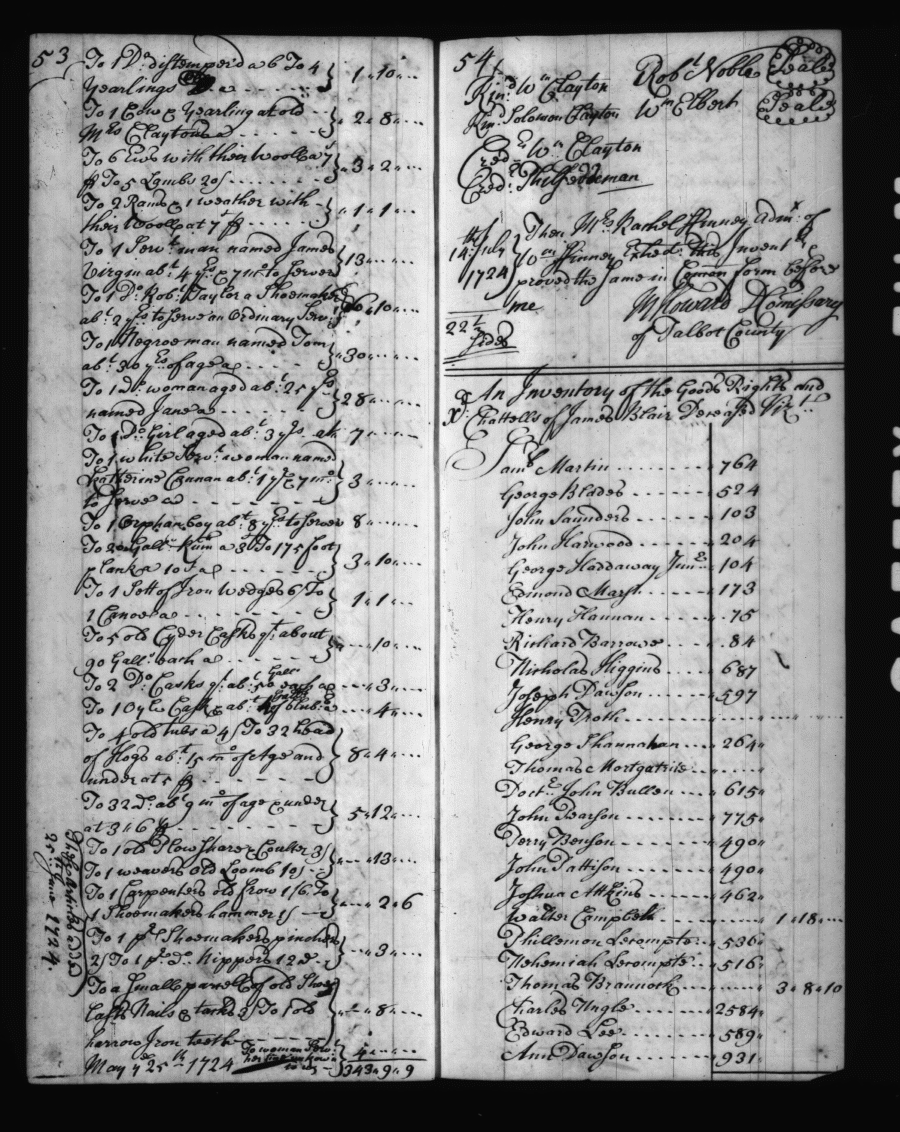 53
To 1 Do. distemper'd a 6 To 4
Yearlings a } 1 " 10 " ...
To 1 Cow & Yearling at old
Mrs Claytons a } " 2 " 8 " ...
To 6 Ews with their Wooll a 7
To 5 Lambs 20/ } " 3 " 2 " ...
To 2 Rams & 1 weather with
their Wooll at 7/ } " 1 " 1 " ...
To 1 Servt. man named James
Virgin abt. 4 ys. & 7 mo. to Serve } 13 " ...
To 1 Do. Robt. Taylor a Shoemaker
abt. 2 yrs to serve an Ordinary Servt. } 6 " 10 " ...
To 1 Negroe man named Tom
abt. 30 yrs of age a } 30 " ...
To 1 Do. woman aged abt. 25 yrs
named Jane a } 28 " ...
To 1 Do. Girl aged abt. 3 yrs at 7 " ...
To 1 white Servt. woman named
Katherine Cannan abt. 1 yr & 7 mo.
to Serve a } 3 " ...
To 1 Orphan boy abt. 8 yrs to serve 8 " ...
To Gall. Rum a 3/ To 175 foot
plank a 10 a } 3 " 10 " ...
To 1 Sett of Iron Wedges 6/ To
1 Canoe a } 1 " 1 " ...
To 5 old Cyder Casks qt. about
90 Galls. each a } " 10 " ...
To 2 Do. Casks qt. abt. 50 Galls each a " 3 " ...
To 1 Casks abt. " 4 " ...
To 4 old tubs a 4/ To 32 head
of Hogs abt. 15 mo. of Age and
under at 5/ } 8 " 4 " ...
To 32 Do. abt. 9 mo. of age & under
at 3 " 6 } 5 " 12 " ...
To 1 old Plow Share & Coulter 3/
To 1 weavers Old Loomb 10/ } " 13 " ...
To 1 Carpenters old Frow 1/6 To
1 Shoemakers hammer 1/ } " 2 " 6
To 1 pr. Shoemakers pinchers
2/ To 1 pr. Do. Nippers 12d } " 3 " ...
To a Small parcell of old Shoe
Lasts Nails & tacks 2/ To 1 old
harrow Iron teeth } " 8 " ...
To woman Serv.
her time unknown } 4 " ...
May ye 25th 1724 343 " 9 " 9
25 June 1724
54
Kind. Wm Clayton Robt. Noble Seale
Kind. Solomon Clayton Wm Elbert Seale
Credr. Wm. Clayton
Credr. Thil Feddeman
14th July
1724 } Then Mrs. Rachel Finney Admx. of
Wm Finney Exhed. this Inventy. &
proved the same in Comon form before
me M Toward D Comissary
of Talbot County
22 1/2
Sides
An Inventory of the Goods Rights and
Chattells of James Blair Deceased Vizt.
Saml Martin 764
George Blades 524
John Saunders 103
John Harwood 204
George Haddaway Junr. 104
Edmond Marsh 173
Henry Hannan 75
Richard Barrowe 84
Nicholas Higgins 687
Joseph Dawson 597
Henry Troth
George Shannahan 264
Thomas Mortgatrise
Doctr. John Bullen 615
John Pearson 775
Perry Benson 490
John Pattison 490
Joshua Atkins 462
Walter Campbell 1 " 18 " ...
Phillemon Lecompte 536
Nehemiah Lecompte 516
Thomas Brannock 3 " 8 " 10
Charles Ungle 2584
Edward Lee 589
Ann Dawson 931